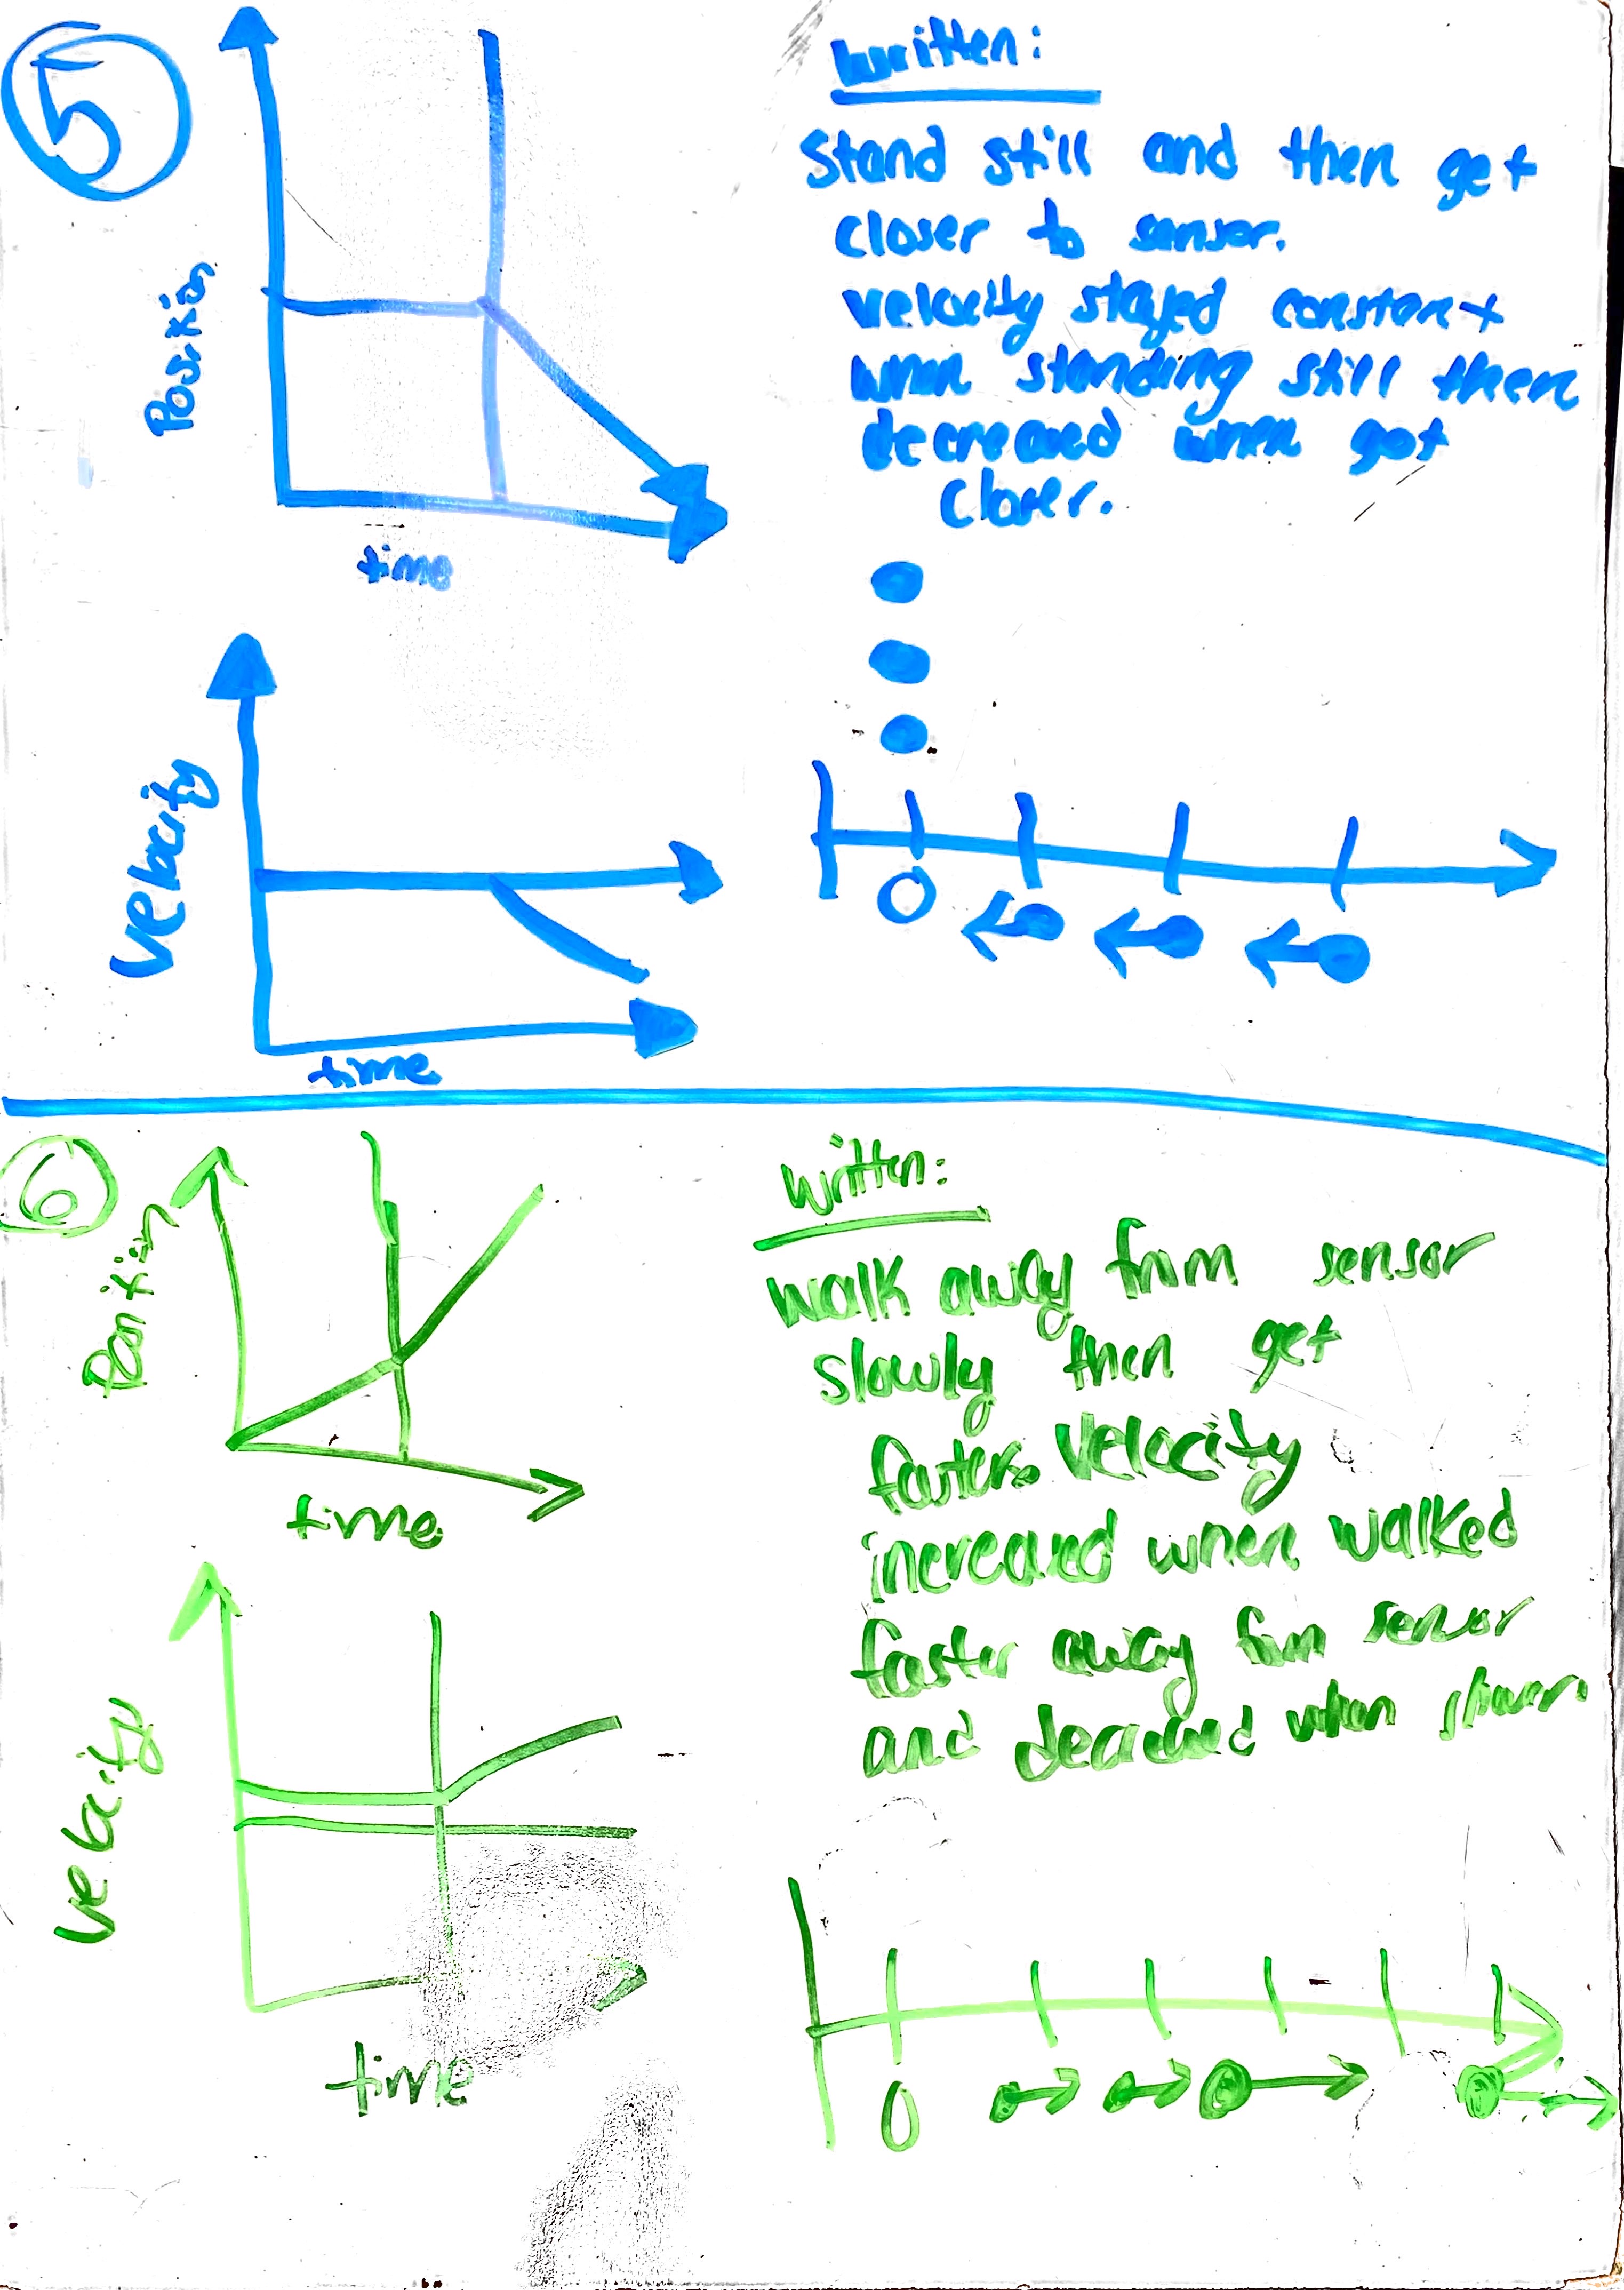 5
Position
time
Written:
Stand still and then get
closer to sensor.
velocity stayed constant
when standing still then
decreased when got
closer.
Velocity
time
0
6
Position
time
Written:
walk away from sensor
slowly then get
faster. Velocity
increased when walked
faster away from sensor
and decreased when slower
Velocity
time
0